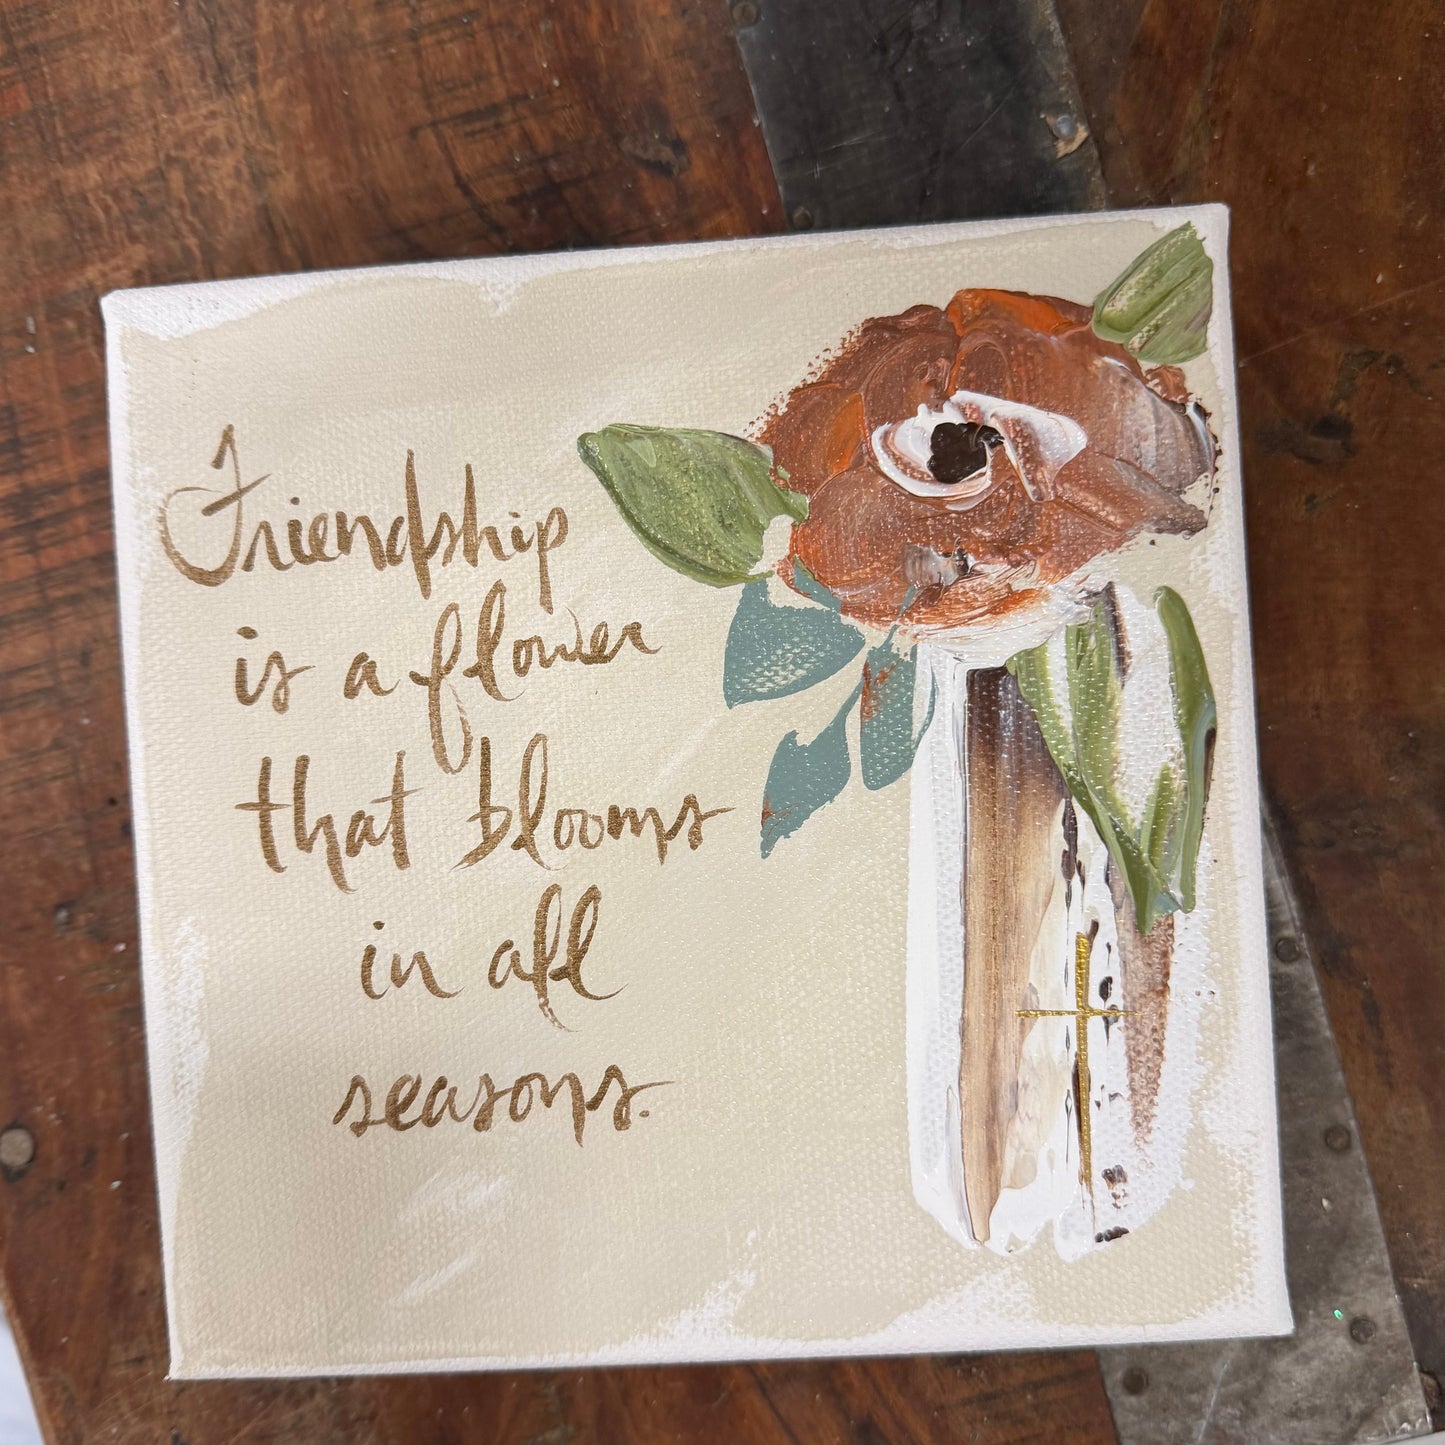 Friendship
is a flower
that blooms
in all
seasons.